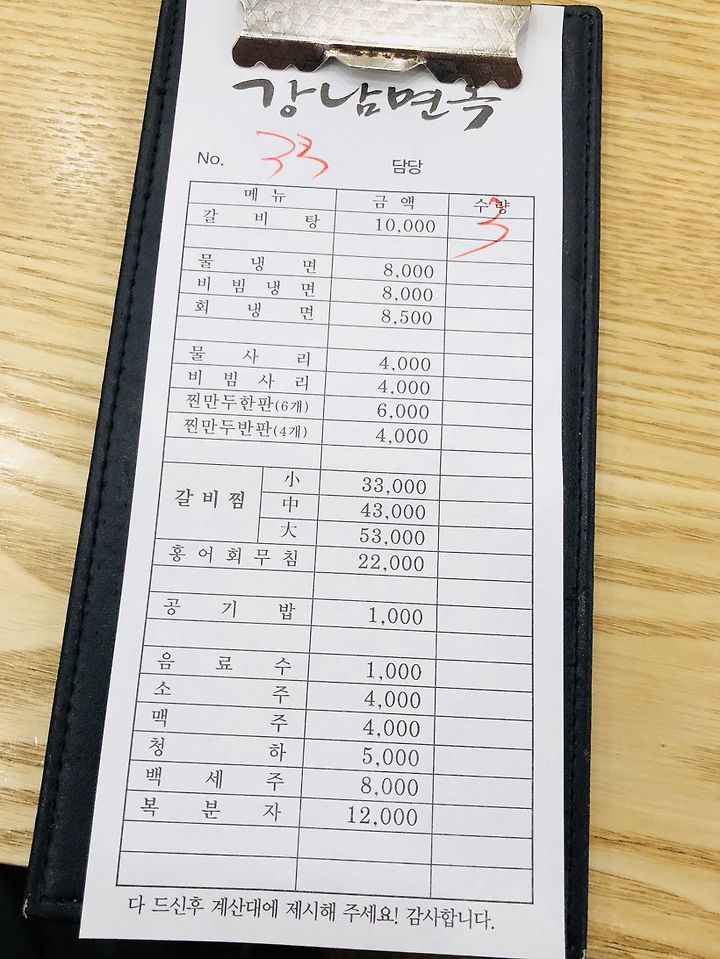 강남면옥
No. 33 담당
메뉴 금액 수량
갈비탕 10,000 3
물냉면 8,000
비빔냉면 8,000
회냉면 8,500
물사리 4,000
비빔사리 4,000
찐만두한판(6개) 6,000
찐만두반판(4개) 4,000
갈비찜 小 33,000
中 43,000
大 53,000
홍어회무침 22,000
공기밥 1,000
음료수 1,000
소주 4,000
맥주 4,000
청하 5,000
백세주 8,000
복분자 12,000
다 드신후 계산대에 제시해 주세요! 감사합니다.